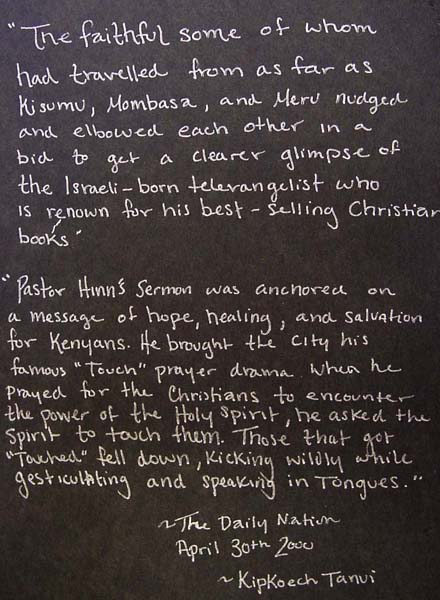 "The faithful some of whom
had travelled from as far as
Kisumu, Mombasa, and Meru nudged
and elbowed each other in a
bid to get a clearer glimpse of
the Israeli-born televangelist who
is renown for his best-selling Christian
books"
"Pastor Hinn's Sermon was anchored on
a message of hope, healing, and salvation
for Kenyans. He brought the city his
famous "Touch" prayer drama when he
prayed for the Christians to encounter
the power of the Holy Spirit, he asked the
Spirit to touch them. Those that got
"Touched" fell down, kicking wildly while
gesticulating and speaking in Tongues."
~The Daily Nation
April 30th 2000
~Kipkoech Tanui